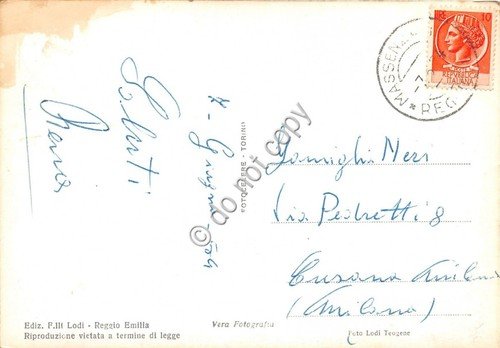 Saluti
Maria
7 - Giugno 1954
FOTOCELERE - TORINO
Famiglia Neri
Via Pedretti 8
Cusano Milan
(Milano)
MASSEN
REG
10
REPUBBLICA
ITALIANA
Ediz. F.lli Lodi - Reggio Emilia
Riproduzione vietata a termine di legge
Vera Fotografia
Foto Lodi Teogene
© do not copy